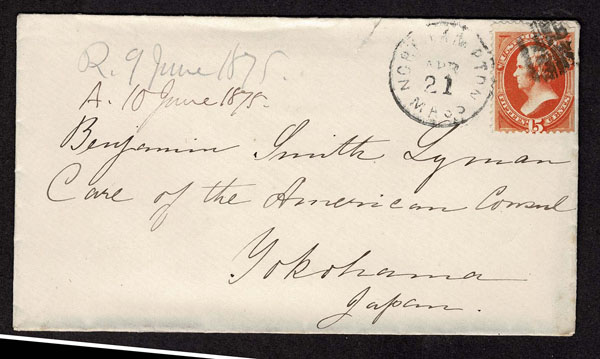 R. 9 June 1875.
A. 10 June 1875.
NORTHAMPTON
APR
21
MASS
FIFTEEN CENTS
15
Benjamin Smith Lyman
Care of the American Consul
Yokohama
Japan.